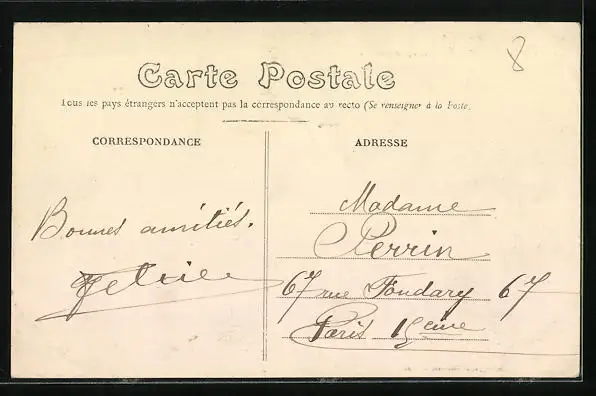 8
Carte Postale
Tous les pays étrangers n'acceptent pas la correspondance au recto (Se renseigner à la Poste.
CORRESPONDANCE
ADRESSE
Bonnes amitiés.
Madame
Perrin
67 rue Fondary 67
Paris 15eme